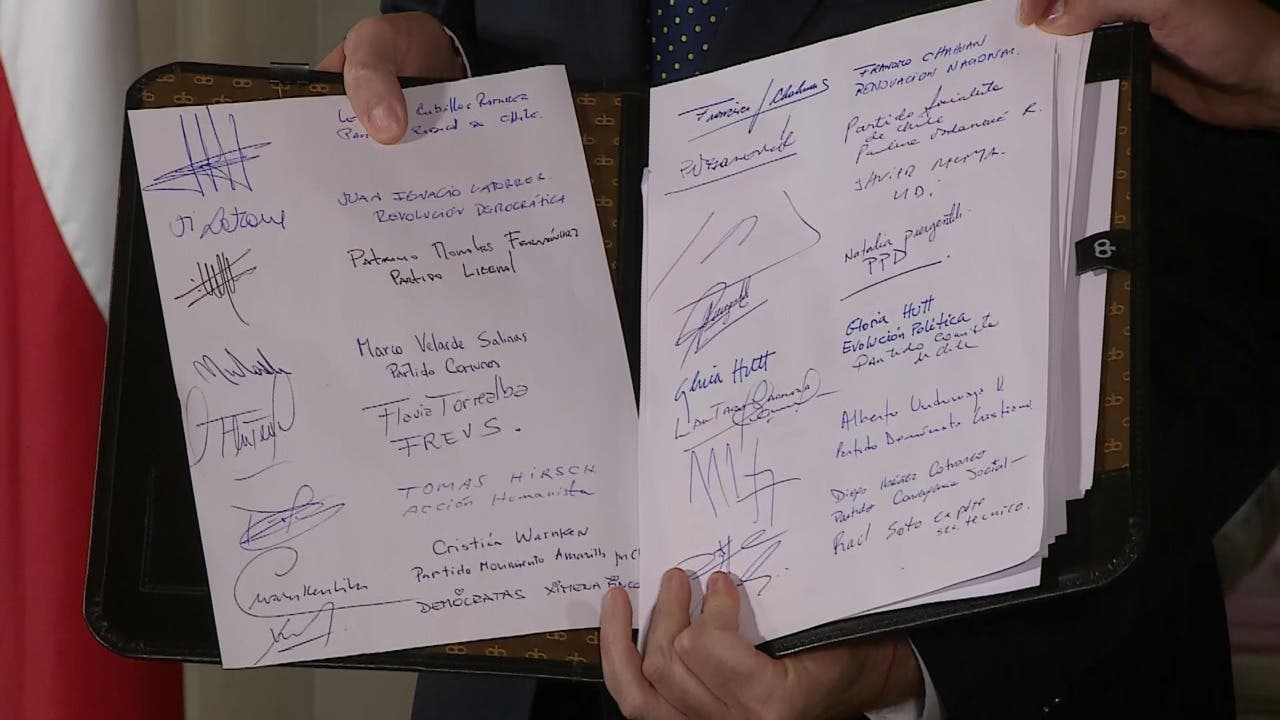 Cubillos Ramírez
Radical de Chile.
JUAN IGNACIO LATORRE.
REVOLUCIÓN DEMOCRÁTICA
Patricio Morales Fernández
Partido Liberal
Marco Velarde Salinas
Partido Comunes
Flavia Torrealba
FREVS.
TOMAS HIRSCH
Acción Humanista
Cristián Warnken
Partido Movimiento Amarillos
DEMÓCRATAS XIMENA RINCO
Francisco Chahuan
FRANCISCO CHAHUAN
RENOVACIÓN NACIONAL.
Partido Socialista
de Chile
Paulina Vodanovic R.
JAVIER
UDI
Natalia Piergentili
PPD
Gloria Hutt
Gloria Hutt
Evolución Política
Partido Comunista
de Chile
Lautaro Carmona
Alberto Undurraga V
Partido Demócrata Cristiano
Diego Ibáñez Cotroneo
Partido Convergencia Social
Raúl Soto
sec. técnico.